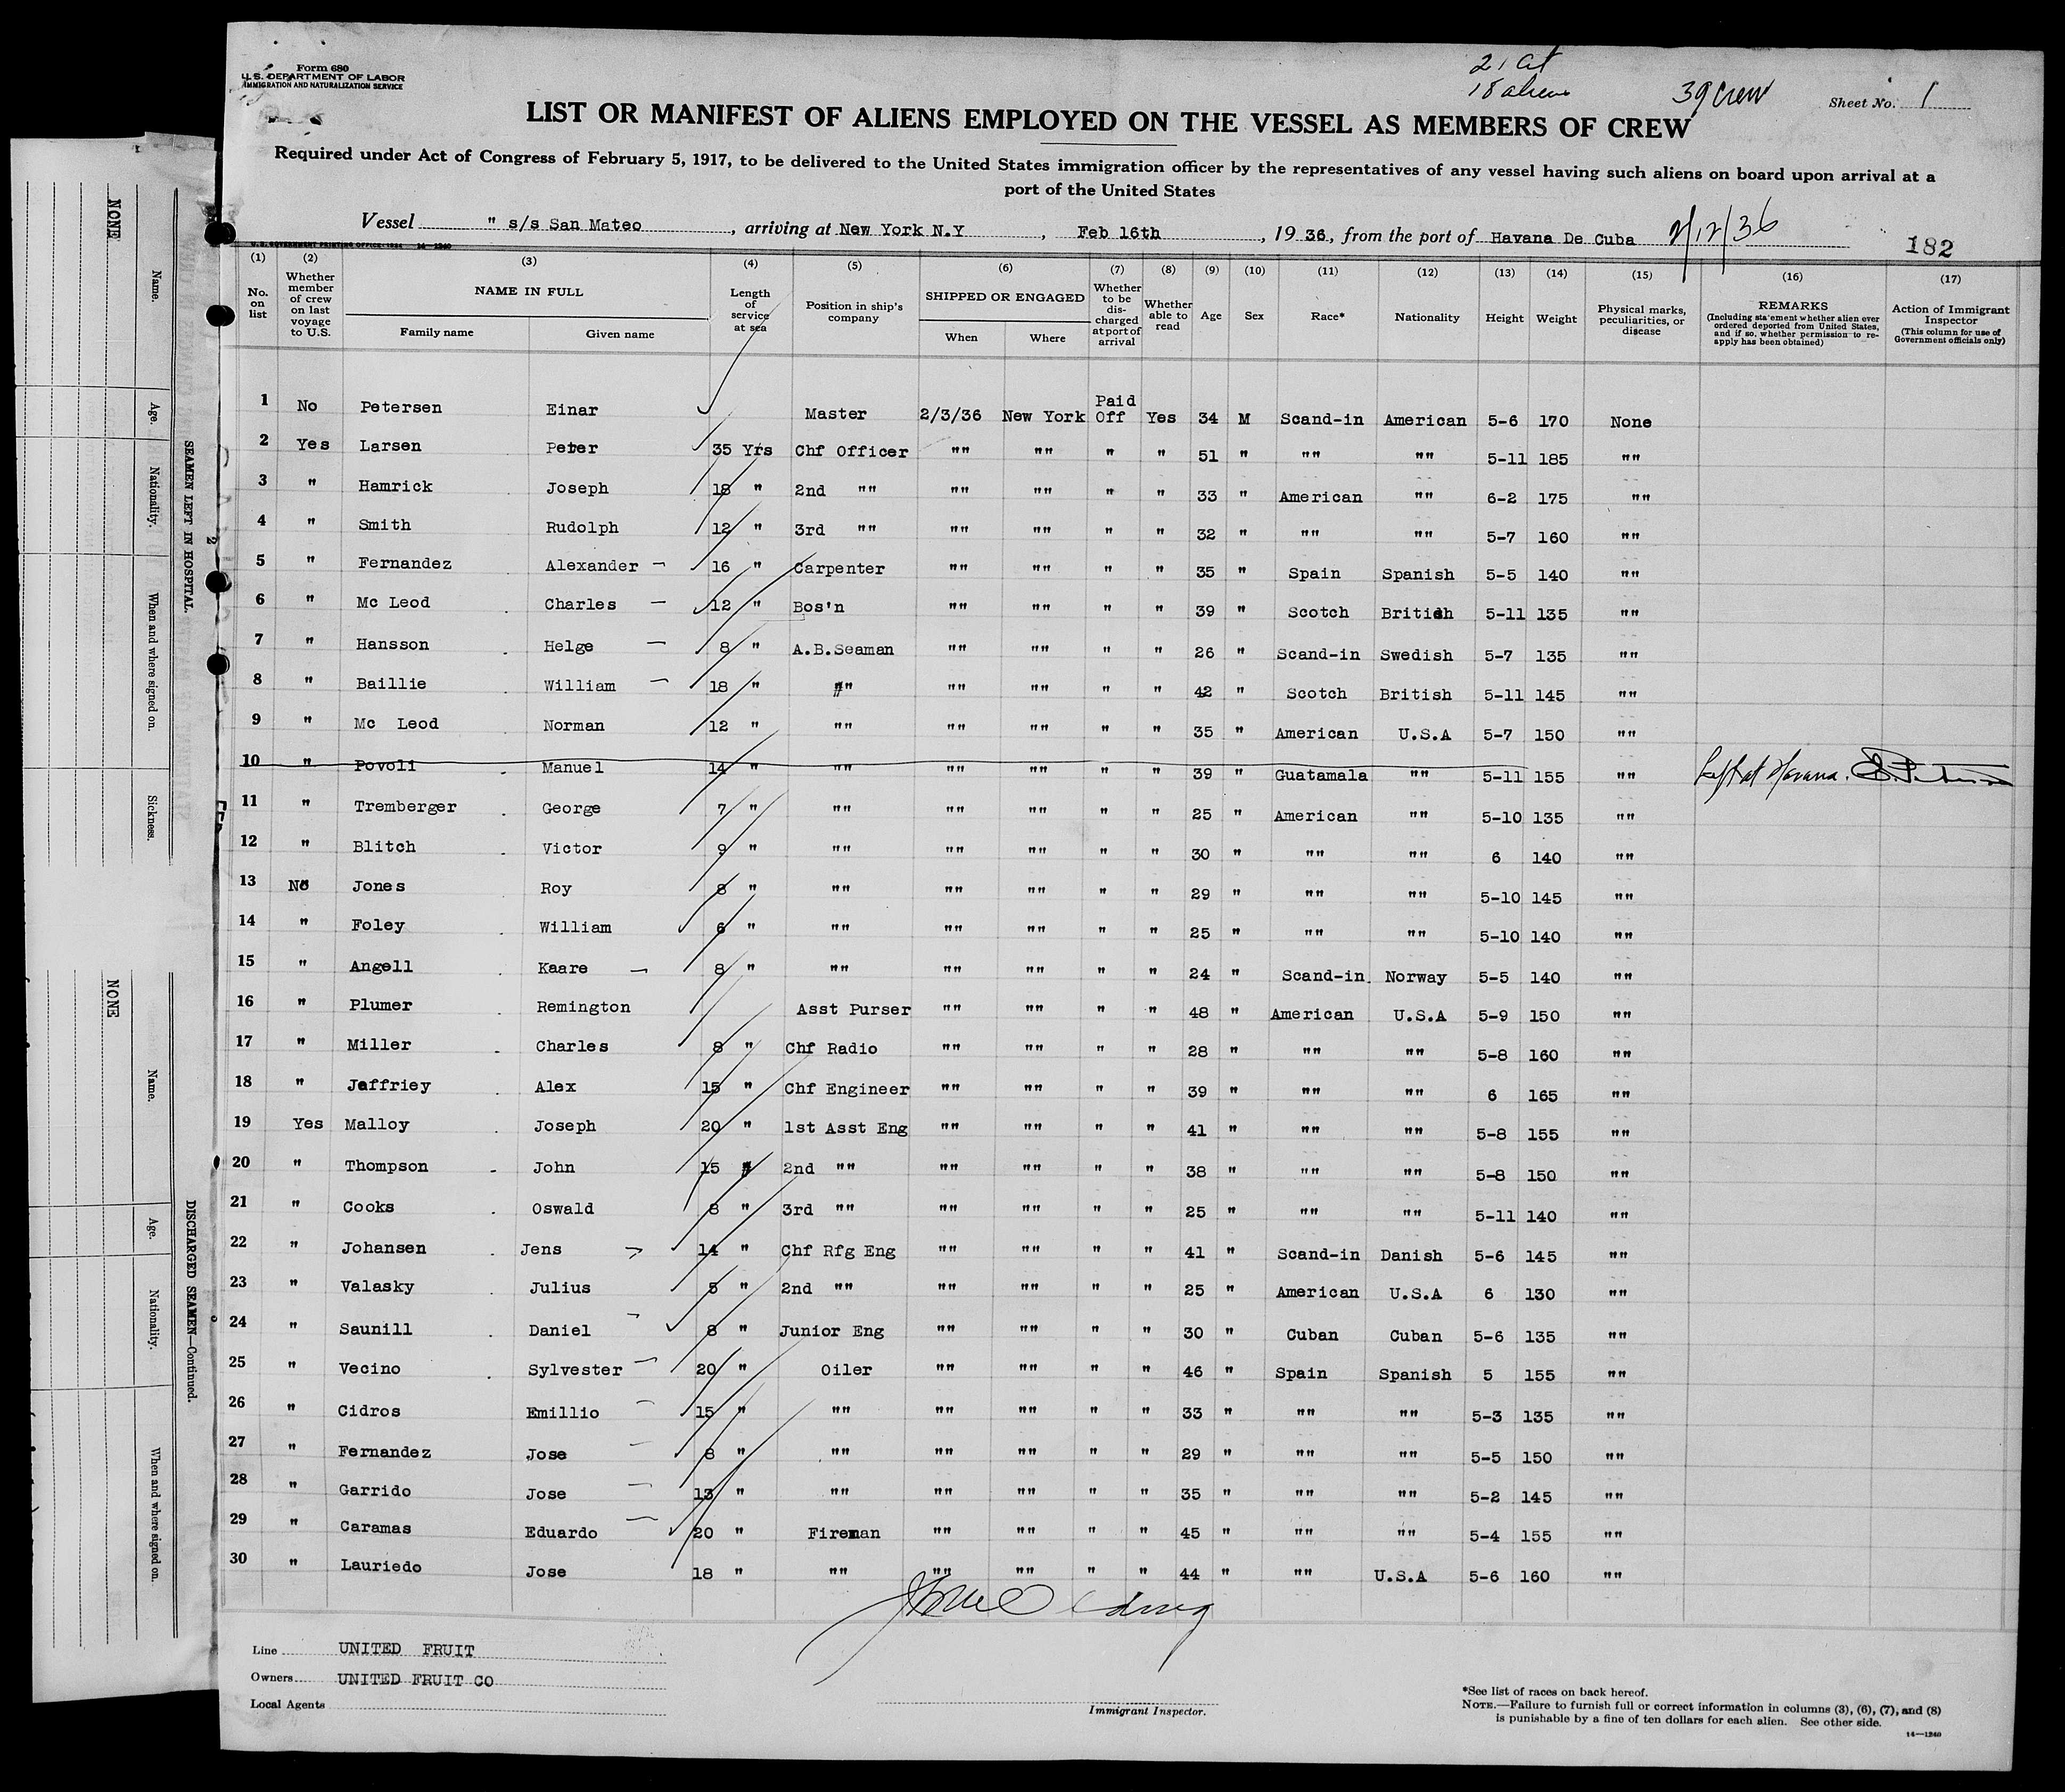 Form 680
U.S. DEPARTMENT OF LABOR
IMMIGRATION AND NATURALIZATION SERVICE
21 Cit
18 aliens
39 crew
Sheet No. 1
LIST OR MANIFEST OF ALIENS EMPLOYED ON THE VESSEL AS MEMBERS OF CREW
Required under Act of Congress of February 5, 1917, to be delivered to the United States immigration officer by the representatives of any vessel having such aliens on board upon arrival at a
port of the United States
Vessel " s/s San Mateo , arriving at New York N.Y , Feb 16th , 19 36, from the port of Havana De Cuba 2/12/36
182
U. S. GOVERNMENT PRINTING OFFICE: 1934 14—1240
(1) (2) (3) (4) (5) (6) (7) (8) (9) (10) (11) (12) (13) (14) (15) (16) (17)
No. on list
Whether member of crew on last voyage to U.S.
NAME IN FULL
Family name Given name
Length of service at sea
Position in ship's company
SHIPPED OR ENGAGED
When Where
Whether to be discharged at port of arrival
Whether able to read
Age
Sex
Race*
Nationality
Height
Weight
Physical marks, peculiarities, or disease
REMARKS
(Including statement whether alien ever ordered deported from United States, and if so, whether permission to reapply has been obtained)
Action of Immigrant Inspector
(This column for use of Government officials only)
1 No Petersen Einar Master 2/3/36 New York Paid Off Yes 34 M Scand-in American 5-6 170 None
2 Yes Larsen Peter 35 Yrs Chf Officer "" "" " " 51 " "" "" 5-11 185 ""
3 " Hamrick Joseph 18 " 2nd "" "" "" " " 33 " American "" 6-2 175 ""
4 " Smith Rudolph 12 " 3rd "" "" "" " " 32 " "" "" 5-7 160 ""
5 " Fernandez Alexander — 16 " Carpenter "" "" " " 35 " Spain Spanish 5-5 140 ""
6 " Mc Leod Charles — 12 " Bos'n "" "" " " 39 " Scotch British 5-11 135 ""
7 " Hansson Helge — 8 " A.B.Seaman "" "" " " 26 " Scand-in Swedish 5-7 135 ""
8 " Baillie William — 18 " "" "" "" " " 42 " Scotch British 5-11 145 ""
9 " Mc Leod Norman 12 " "" "" "" " " 35 " American U.S.A 5-7 150 ""
10 " Povoli Manuel 14 " "" "" "" " " 39 " Guatamala "" 5-11 155 "" Left at Havana. E. Petersen
11 " Tremberger George 7 " "" "" "" " " 25 " American "" 5-10 135 ""
12 " Blitch Victor 9 " "" "" "" " " 30 " "" "" 6 140 ""
13 No Jones Roy 8 " "" "" "" " " 29 " "" "" 5-10 145 ""
14 " Foley William 6 " "" "" "" " " 25 " "" "" 5-10 140 ""
15 " Angell Kaare — 8 " "" "" "" " " 24 " Scand-in. Norway 5-5 140 ""
16 " Plumer Remington Asst Purser "" "" " " 48 " American U.S.A 5-9 150 ""
17 " Miller Charles 8 " Chf Radio "" "" " " 28 " "" "" 5-8 160 ""
18 " Jeffriey Alex 15 " Chf Engineer "" "" " " 39 " "" "" 6 165 ""
19 Yes Malloy Joseph 20 " 1st Asst Eng "" "" " " 41 " "" "" 5-8 155 ""
20 " Thompson John 15 " 2nd "" "" "" " " 38 " "" "" 5-8 150 ""
21 " Cooks Oswald 8 " 3rd "" "" "" " " 25 " "" "" 5-11 140 ""
22 " Johansen Jens — 14 " Chf Rfg Eng "" "" " " 41 " Scand-in Danish 5-6 145 ""
23 " Valasky Julius 5 " 2nd "" "" "" " " 25 " American U.S.A 6 130 ""
24 " Saunill Daniel — 8 " Junior Eng "" "" " " 30 " Cuban Cuban 5-6 135 ""
25 " Vecino Sylvester — 20 " Oiler "" "" " " 46 " Spain Spanish 5 155 ""
26 " Cidros Emillio — 15 " "" "" "" " " 33 " "" "" 5-3 135 ""
27 " Fernandez Jose — 8 " "" "" "" " " 29 " "" "" 5-5 150 ""
28 " Garrido Jose — 13 " "" "" "" " " 35 " "" "" 5-2 145 ""
29 " Caramas Eduardo — 20 " Fireman "" "" " " 45 " "" "" 5-4 155 ""
30 " Lauriedo Jose 18 " "" "" "" " " 44 " "" U.S.A 5-6 160 ""
Line UNITED FRUIT
Owners UNITED FRUIT CO
Local Agents
Immigrant Inspector.
*See list of races on back hereof.
NOTE.—Failure to furnish full or correct information in columns (3), (6), (7), and (8)
is punishable by a fine of ten dollars for each alien. See other side.
14—1240
SEAMEN LEFT IN HOSPITAL.
Name. Age. Nationality. When and where signed on. Sickness.
NONE
2
DISCHARGED SEAMEN—Continued.
Name. Age. Nationality. When and where signed on.
NONE